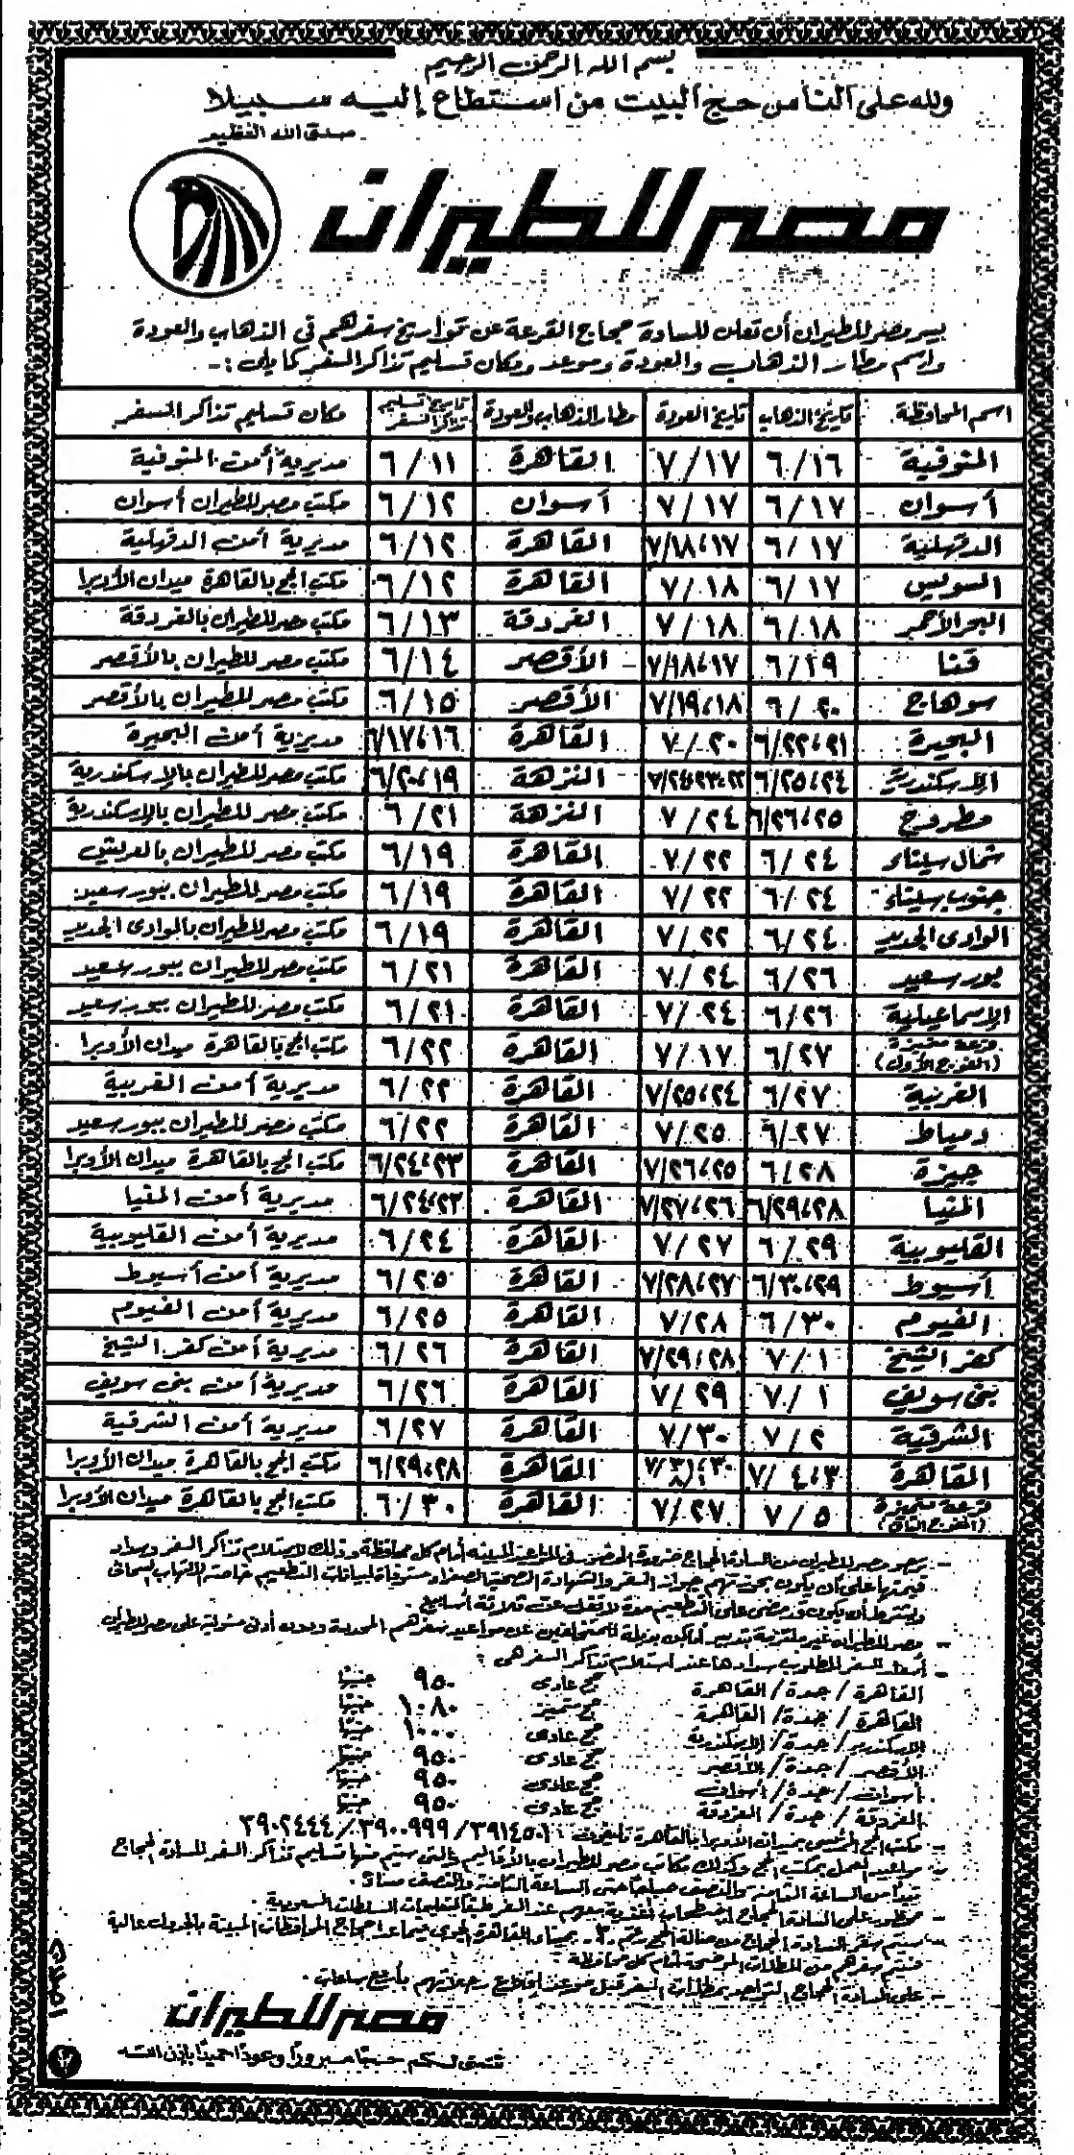 بسم الله الرحمن الرحيم
ولله على الناس حج البيت من استطاع إليه سبيلا
صدق الله العظيم
مصر للطيران
يسر مصر للطيران أن تعلن للسادة حجاج القرعة عن تواريخ سفرهم فى الذهاب والعودة
واسم مطار الذهاب والعودة وموعد ومكان تسليم تذاكر السفر كما يلى :-
اسم المحافظة تاريخ الذهاب تاريخ العودة مطار الذهاب والعودة تاريخ تسليم تذاكر السفر مكان تسليم تذاكر السفر
المنوفية ٦/١٦ ٧/١٧ القاهرة ٦/١١ مديرية أمن المنوفية
أسوان ٦/١٧ ٧/١٧ أسوان ٦/١٢ مكتب مصر للطيران أسوان
الدقهلية ٦/١٧ ٧/١٨،١٧ القاهرة ٦/١٢ مديرية أمن الدقهلية
السويس ٦/١٧ ٧/١٨ القاهرة ٦/١٢ مكتب الحج بالقاهرة ميدان الأوبرا
البحر الأحمر ٦/١٨ ٧/١٨ الغردقة ٦/١٣ مكتب مصر للطيران بالغردقة
قنا ٦/١٩ ٧/١٨،١٧ الأقصر ٦/١٤ مكتب مصر للطيران بالأقصر
سوهاج ٦/٢٠ ٧/١٩،١٨ الأقصر ٦/١٥ مكتب مصر للطيران بالأقصر
البحيرة ٦/٢٢،٢١ ٧/٢٠ القاهرة ٦/١٧،١٦ مديرية أمن البحيرة
الإسكندرية ٦/٢٥،٢٤ ٧/٢٤،٢٣،٢٢ النزهة ٦/٢٠،١٩ مكتب مصر للطيران بالإسكندرية
مطروح ٦/٢٦،٢٥ ٧/٢٤ النزهة ٦/٢١ مكتب مصر للطيران بالإسكندرية
شمال سيناء ٦/٢٤ ٧/٢٢ القاهرة ٦/١٩ مكتب مصر للطيران بالعريش
جنوب سيناء ٦/٢٤ ٧/٢٢ القاهرة ٦/١٩ مكتب مصر للطيران ببور سعيد
الوادى الجديد ٦/٢٤ ٧/٢٢ القاهرة ٦/١٩ مكتب مصر للطيران بالوادى الجديد
بور سعيد ٦/٢٦ ٧/٢٤ القاهرة ٦/٢١ مكتب مصر للطيران ببور سعيد
الإسماعيلية ٦/٢٦ ٧/٢٤ القاهرة ٦/٢١ مكتب مصر للطيران ببور سعيد
قرعة متميزة (الفوج الأول) ٦/٢٧ ٧/١٧ القاهرة ٦/٢٢ مكتب الحج بالقاهرة ميدان الأوبرا
الغربية ٦/٢٧ ٧/٢٥،٢٤ القاهرة ٦/٢٢ مديرية أمن الغربية
دمياط ٦/٢٧ ٧/٢٥ القاهرة ٦/٢٢ مكتب مصر للطيران ببور سعيد
جيزة ٦/٢٨ ٧/٢٦،٢٥ القاهرة ٦/٢٤،٢٣ مكتب الحج بالقاهرة ميدان الأوبرا
المنيا ٦/٢٩،٢٨ ٧/٢٧،٢٦ القاهرة ٦/٢٤،٢٣ مديرية أمن المنيا
القليوبية ٦/٢٩ ٧/٢٧ القاهرة ٦/٢٤ مديرية أمن القليوبية
أسيوط ٦/٣٠،٢٩ ٧/٢٨،٢٧ القاهرة ٦/٢٥ مديرية أمن أسيوط
الفيوم ٦/٣٠ ٧/٢٨ القاهرة ٦/٢٥ مديرية أمن الفيوم
كفر الشيخ ٧/١ ٧/٢٩،٢٨ القاهرة ٦/٢٦ مديرية أمن كفر الشيخ
بنى سويف ٧/١ ٧/٢٩ القاهرة ٦/٢٦ مديرية أمن بنى سويف
الشرقية ٧/٢ ٧/٣٠ القاهرة ٦/٢٧ مديرية أمن الشرقية
القاهرة ٧/٤،٣ ٧/٣١،٣٠ ٨/١ القاهرة ٦/٢٩،٢٨ مكتب الحج بالقاهرة ميدان الأوبرا
قرعة متميزة (الفوج الثانى) ٧/٥ ٧/٢٧ القاهرة ٦/٣٠ مكتب الحج بالقاهرة ميدان الأوبرا
- ترجو مصر للطيران من السادة الحجاج ضرورة الحضور فى المواعيد المبينة أمام كل محافظة وذلك لاستلام تذاكر السفر وسداد
قيمتها على أن يكون بحوزتهم جوازات السفر والشهادة الصحية الصفراء مستوفاة لبيانات التطعيم خاصة الالتهاب السحائى
ويشترط أن يكون قد مضى على التطعيم مدة لا تقل عن ثلاثة أسابيع .
- مصر للطيران غير ملتزمة بتدبير أماكن بديلة للمتخلفين عن مواعيد سفرهم المحددة ودون أدنى مسئولية على مصر للطيران
- أسعار السفر المطلوب سدادها عند استلام تذاكر السفر هى :
القاهرة / جدة / القاهرة حج عادى ٩٥٠ جنيها
القاهرة / جدة / القاهرة حج متميز ١٠٨٠ جنيها
الإسكندرية / جدة / الإسكندرية حج عادى ١٠٠٠ جنيها
الأقصر / جدة / الأقصر حج عادى ٩٥٠ جنيها
أسوان / جدة / أسوان حج عادى ٩٥٠ جنيها
الغردقة / جدة / الغردقة حج عادى ٩٥٠ جنيها
- مكتب الحج الرئيسى بميدان الأوبرا بالقاهرة تليفون ٣٩٠٠٩٩٩ / ٣٩٠٢٤٤٤
- مواعيد العمل بمكتب الحج وكذلك مكاتب مصر للطيران بالأقاليم والتى سيتم منها تسليم تذاكر السفر للسادة الحجاج
تبدأ من الساعة الثامنة والنصف صباحا حتى الساعة الثامنة والنصف مساء .
- محظور على السادة الحجاج اصطحاب أغذية معهم عند السفر طبقا لتعليمات السلطات السعودية .
- سيتم سفر السادة الحجاج من صالة الحج رقم ٣ بميناء القاهرة الجوى فيما عدا حجاج المحافظات المبينة بالجدول عاليه
فيتم سفرهم من المطارات الموضحة أمام كل محافظة .
- على السادة الحجاج التواجد بمطارات السفر قبل موعد إقلاع رحلاتهم بأربع ساعات .
مصر للطيران
تتمنى لكم حجا مبرورا وعودا حميدا بإذن الله